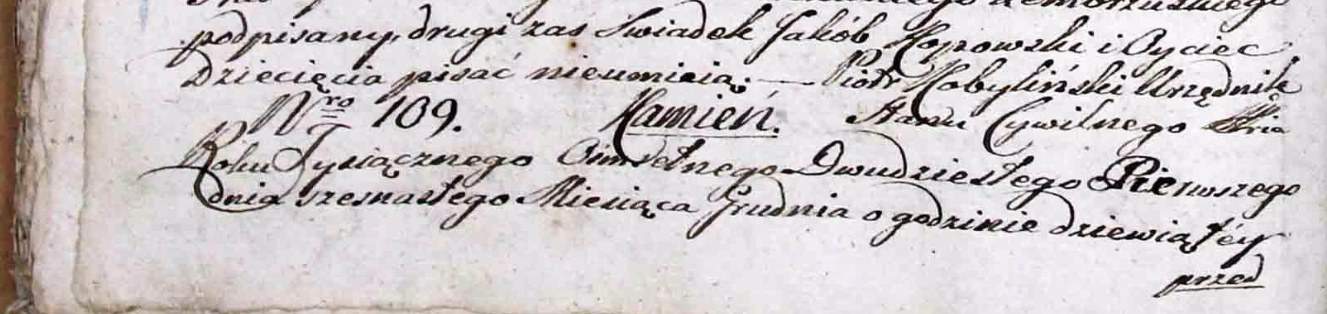 podpisany, drugi zas Swiadek Jakób Kopowski i Oyciec
Dziecięcia pisać nieumieią. — Piotr Kobyliński Urzędnik
Nro 109. Kamień. Stanu Cywilnego
Roku Tysiącznego Ośmsetnego Dwudziestego Pierwszego
dnia szesnastego Miesiąca Grudnia o godzinie dziewiątéy
przed